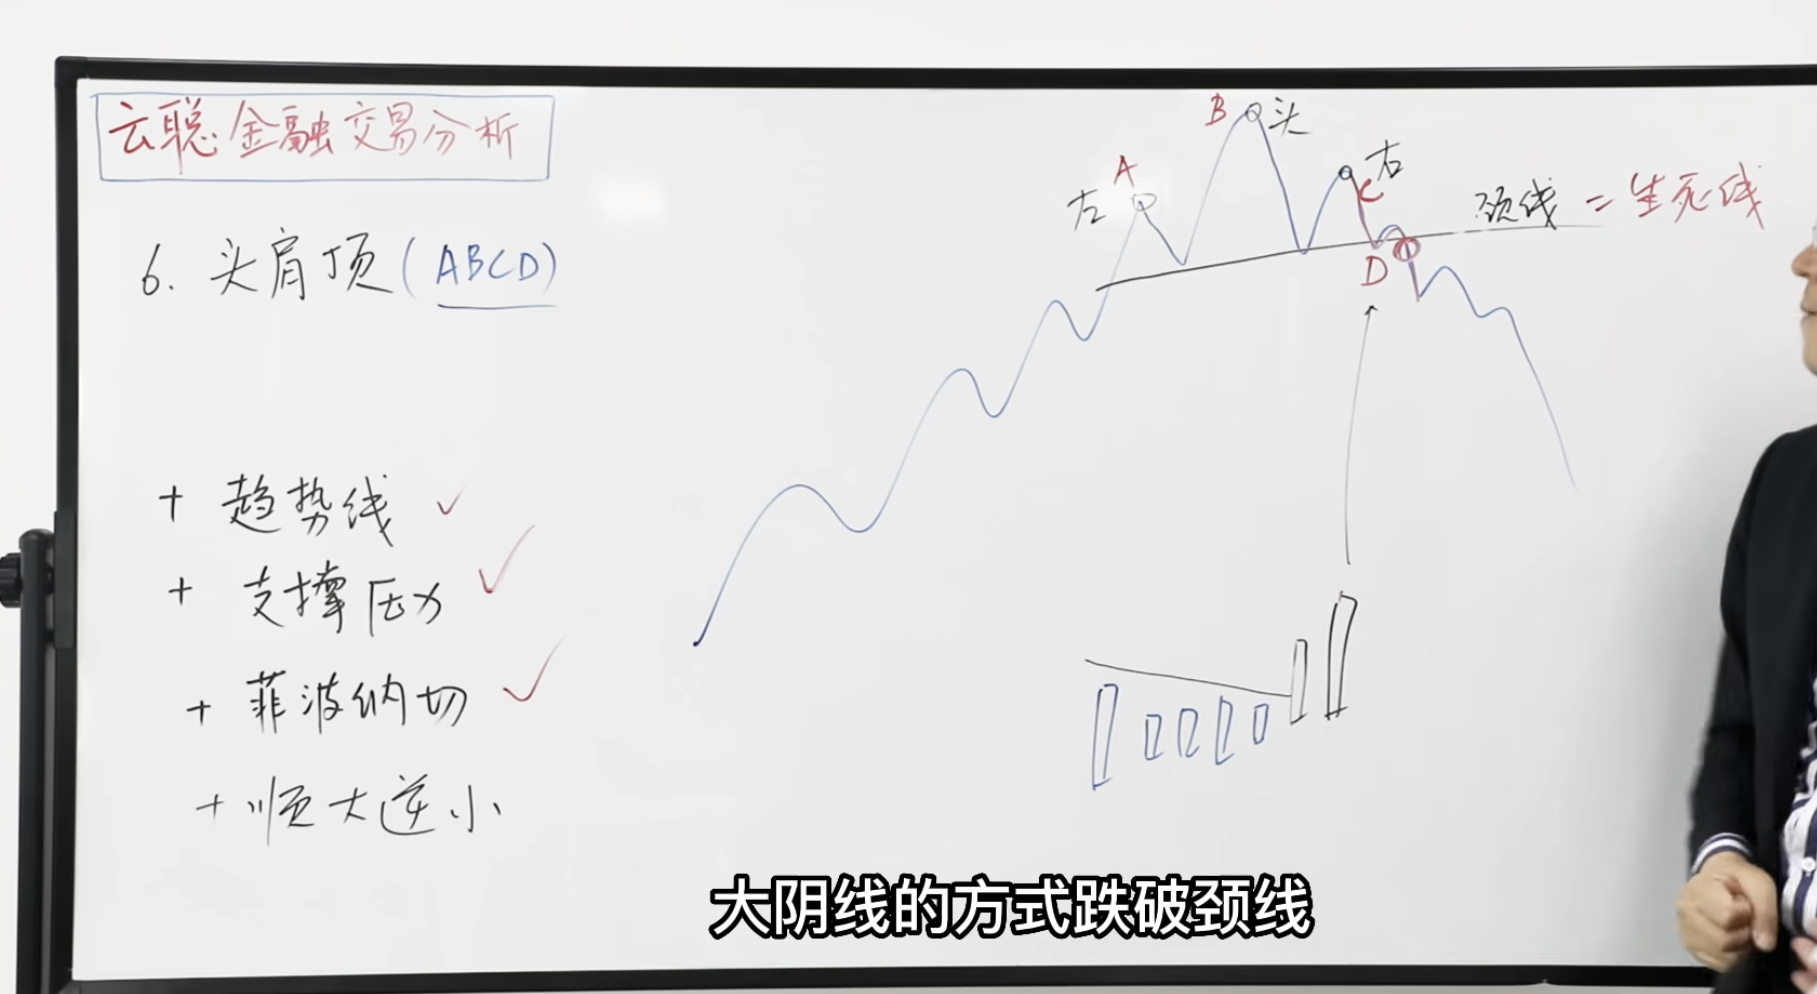 云聪金融交易分析
6. 头肩顶(ABCD)
+ 趋势线 ✓
+ 支撑压力 ✓
+ 菲波纳切 ✓
+ 顺大逆小
B 头
A
左
右
C
颈线 = 生死线
D
大阴线的方式跌破颈线